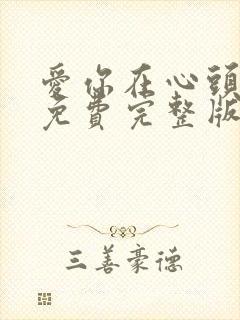 愛你在心頭
免費完整版
三善豪德